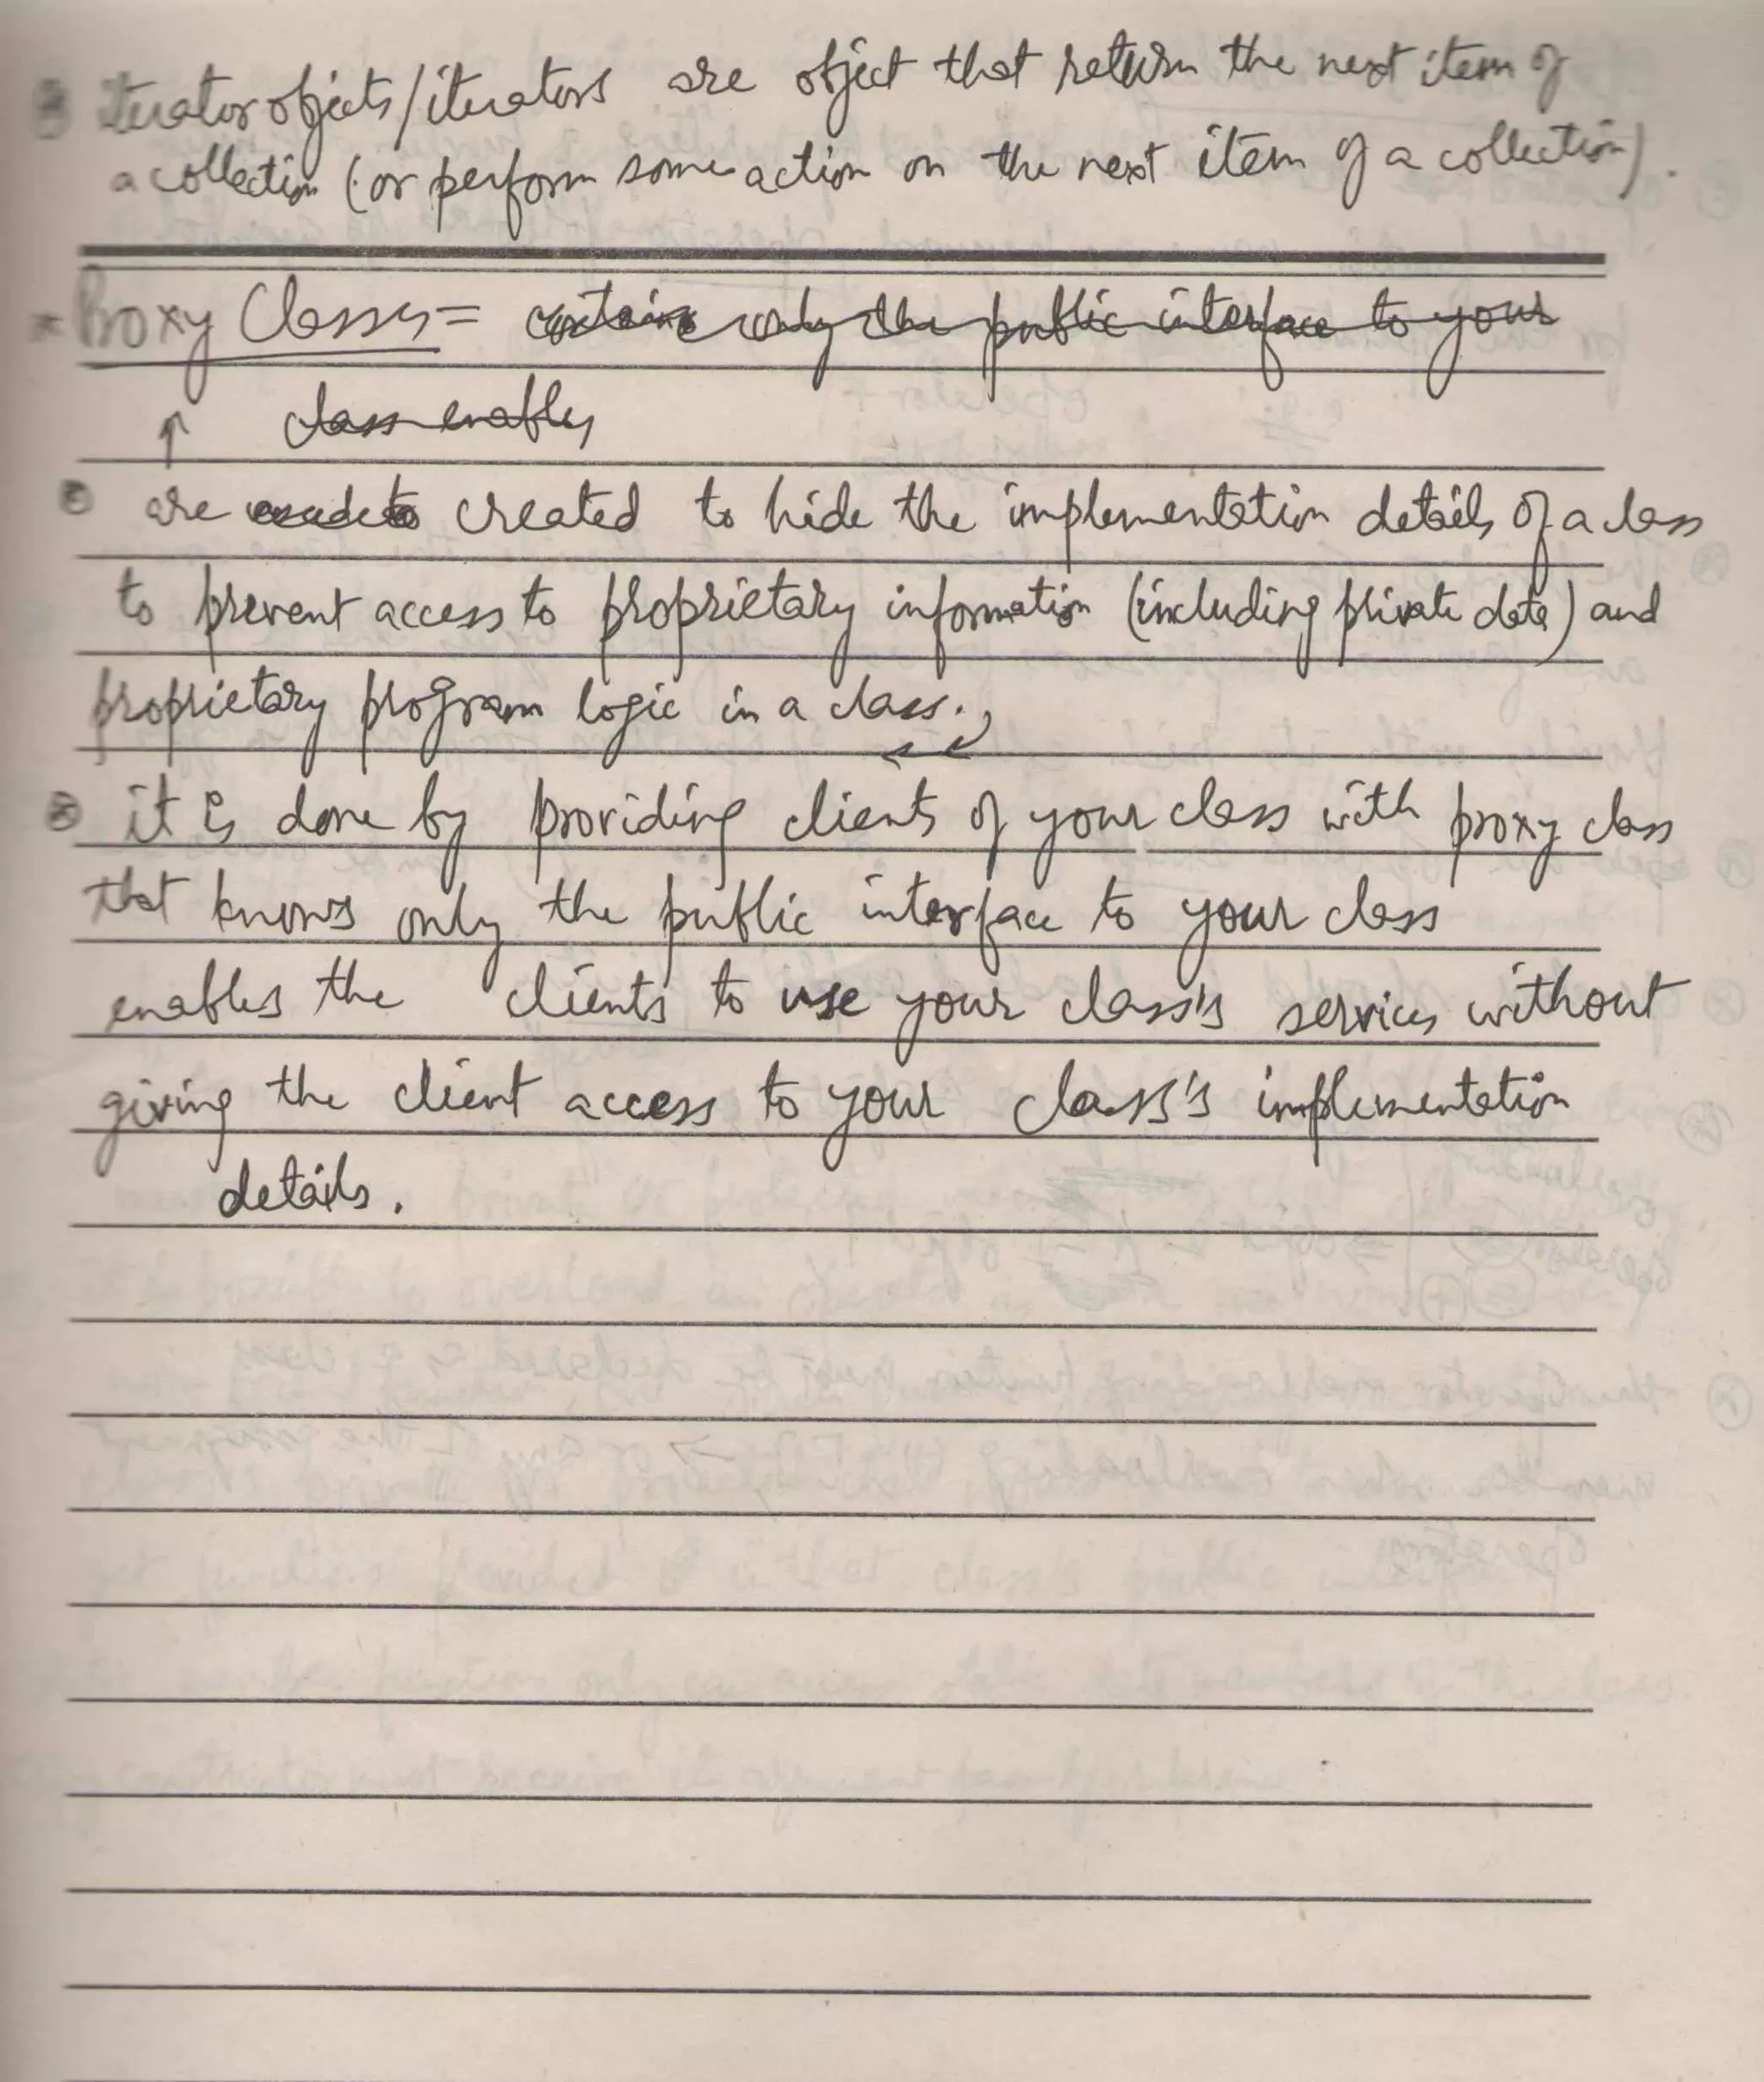 ⊛ Iterator objects/iterators are object that return the next item of
a collection (or perform some action on the next item of a collection).
* Proxy Classes = contains only the public interface to your
↑ class enables
⊛ are created to hide the implementation details of a class
to prevent access to proprietary information (including private data) and
proprietary program logic in a class.
⊛ it is done by providing clients of your class with proxy class
that knows only the public interface to your class
enables the clients to use your class's services without
giving the client access to your class's implementation
details.